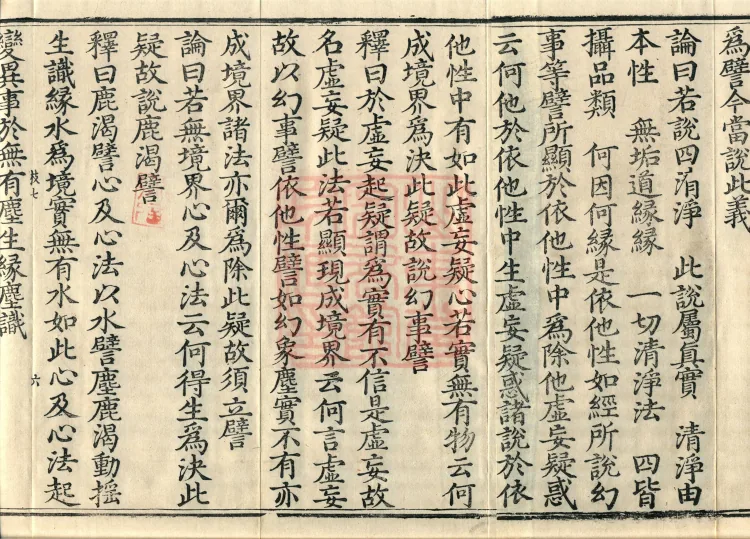 為譬今當說此義
論曰若說四清淨　此說屬真實　清淨由
本性　無垢道緣緣　一切清淨法　四皆
攝品類　何因何緣是依他性如經所說幻
事等譬所顯於依他性中為除他虛妄疑惑
云何他於依他性中生虛妄疑惑諸說於依
他性中有如此虛妄疑心若實無有物云何
成境界為決此疑故說幻事譬
釋曰於虛妄起疑謂為實有不信是虛妄故
名虛妄疑此法若顯現成境界云何言虛妄
故以幻事譬依他性譬如幻象塵實不有亦
成境界諸法亦爾為除此疑故須立譬
論曰若無境界心及心法云何得生為決此
疑故說鹿渴譬
釋曰鹿渴譬心及心法以水譬塵鹿渴動搖
生識緣水為境實無有水如此心及心法起
變異事於無有塵生緣塵識
六